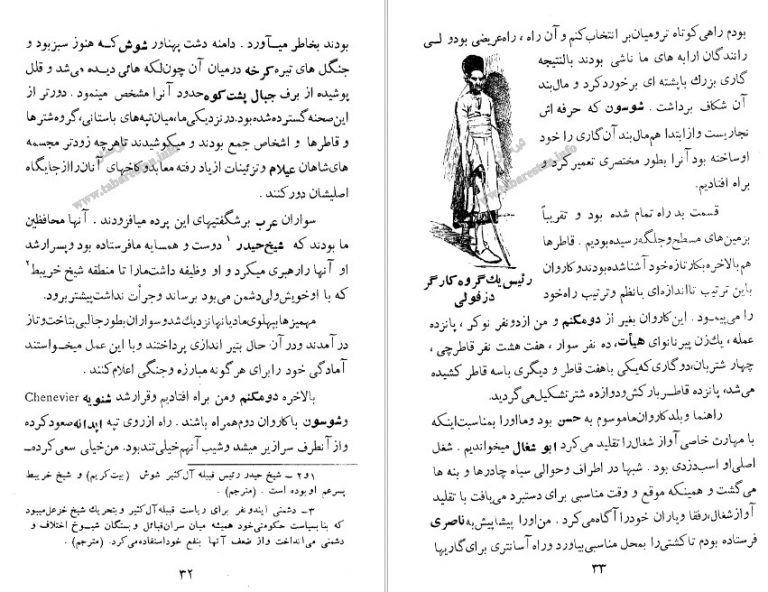 بودند بخاطر میآورد . دامنه دشت پهناور شوش که هنوز سبز بود و
جنگل های تیره کرخه درمیان آن چون لکه هائی دیده می‌شد و قلل
پوشیده از برف جبال پشت‌کوه حدود آنرا مشخص مینمود . دورتر از
این صحنه گسترده شده بود. در نزدیکی ما، میان تپه های باستانی، گروه شترها
و قاطرها و اشخاص جمع بودند و میکوشیدند تا هرچه زودتر مجسمه
های شاهان عیلام و تزئینات از یاد رفته معابد و کاخهای آنان را از جایگاه
اصلیشان دور کنند .
سواران عرب بر شگفتیهای این پرده میافزودند . آنها محافظین
ما بودند که شیخ حیدر ۱ دوست و همسایه ما فرستاده بود و پسر ارشد
او آنها را رهبری میکرد و او وظیفه داشت ما را تا منطقه شیخ خریبط ۲
که با او خویش ولی دشمن می بود برساند و جرأت نداشت پیشتر برود .
مهمیزها بپهلوی مادیانها نزدیک شد و سواران بطور جالبی بتاخت و تاز
در آمدند و در آن حال بتیر اندازی پرداختند و با این عمل میخواستند
آمادگی خود را برای هر گونه مبارزه و جنگی اعلام کنند .
بالاخره دومکنم و من براه افتادیم و قرار شد شنویه Chenevier
و شوسون با کاروان دوم همراه باشند . راه از روی تپه آپدانه صعود کرده
و از آنطرف سرازیر میشد و شیب آنهم خیلی تند بود. من خیلی سعی کرده‌ـ
۱و۲ـ شیخ حیدر رئیس قبیله آل کثیر شوش (بیت کریم) و شیخ خریبط
پسرعم او بوده است . (مترجم) .
۳ـ دشمنی ایندو نفر برای ریاست قبیله آل کثیر و بتحریك شیخ خزعل میبود
که بنا بسیاست حکومتی خود همیشه میان سران قبائل و بستگان شیوخ اختلاف و
دشمنی می‌انداخت و از ضعف آنها بنفع خود استفاده می‌کرد. (مترجم) .
۳۲
بودم راهی کوتاه تر و میان بر انتخاب کنم و آن راه ، راه عریضی بود و لی
رانندگان ارابه های ما ناشی بودند بالنتیجه
گاری بزرك با پشته ای برخورد کرد و مال بند
آن شکاف برداشت . شوسون که حرفه اش
نجاریست و از ابتدا هم مال بند آن گاری را خود
او ساخته بود آنرا بطور مختصری تعمیر کرد و
براه افتادیم .
قسمت بد راه تمام شده بود و تقریباً
بزمین های مسطح و جلگه رسیده بودیم . قاطرها
هم بالاخره بکار تازه خود آشنا شده بودند و کاروان
باین ترتیب تا اندازه ای با نظم و ترتیب راه خود
رئیس یك گروه کارگر
دزفولی
را می پیمود . این کاروان بغیر از دومکنم و من از دو نفر نوکر ، پانزده
عمله ، یك زن پیر نانوای هیأت، ده نفر سوار ، هفت هشت نفر قاطرچی ،
چهار شتربان، دو گاری که یکی با هفت قاطر و دیگری با سه قاطر کشیده
می شد، پانزده قاطر بارکش و دوازده شتر تشکیل می گردید.
راهنما و بلد کاروان ما موسوم به حسن بود و ما او را بمناسبت اینکه
با مهارت خاصی آواز شغال را تقلید می کرد ابو شغال میخواندیم . شغل
اصلی او اسب دزدی بود . شبها در اطراف و حوالی سیاه چادرها و بنه ها
می گشت و همینکه موقع و وقت مناسبی برای دستبرد می یافت با تقلید
آواز شغال، رفقا و یاران خود را آگاه می کرد . من او را پیشاپیش به ناصری
فرستاده بودم تا کشتی را بمحل مناسبی بیاورد و راه آسانتری برای گاریها
۳۳